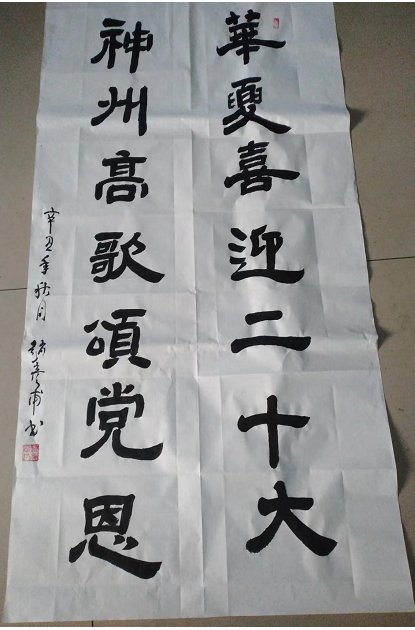 華夏喜迎二十大
神州高歌頌党恩
辛丑年秋月 書